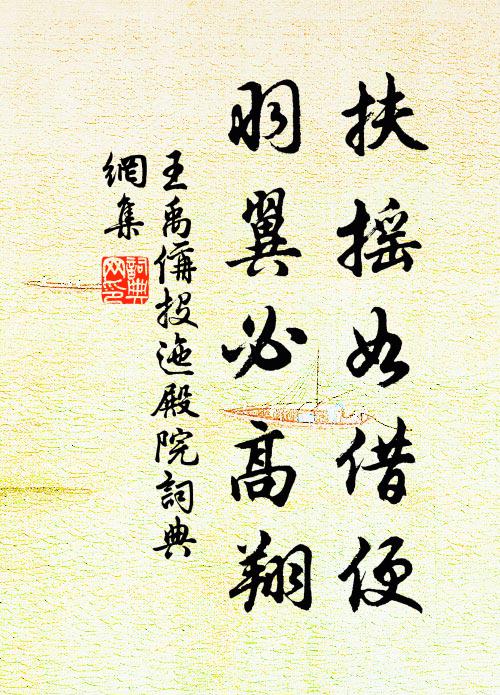 扶摇如借便
羽翼必高翔
王禹偁投迤殿院詞典
網集
詞典
网印